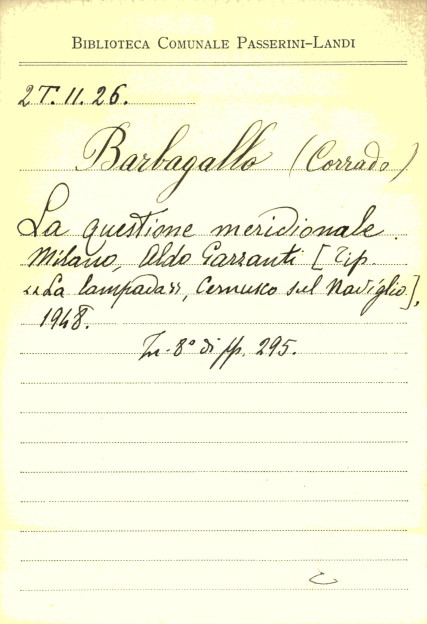 BIBLIOTECA COMUNALE PASSERINI-LANDI
2T.11.26.
Barbagallo (Corrado)
La questione meridionale.
Milano, Aldo Garzanti [Tip.
«La lampada», Cernusco sul Naviglio],
1948.
In-8° di pp. 295.